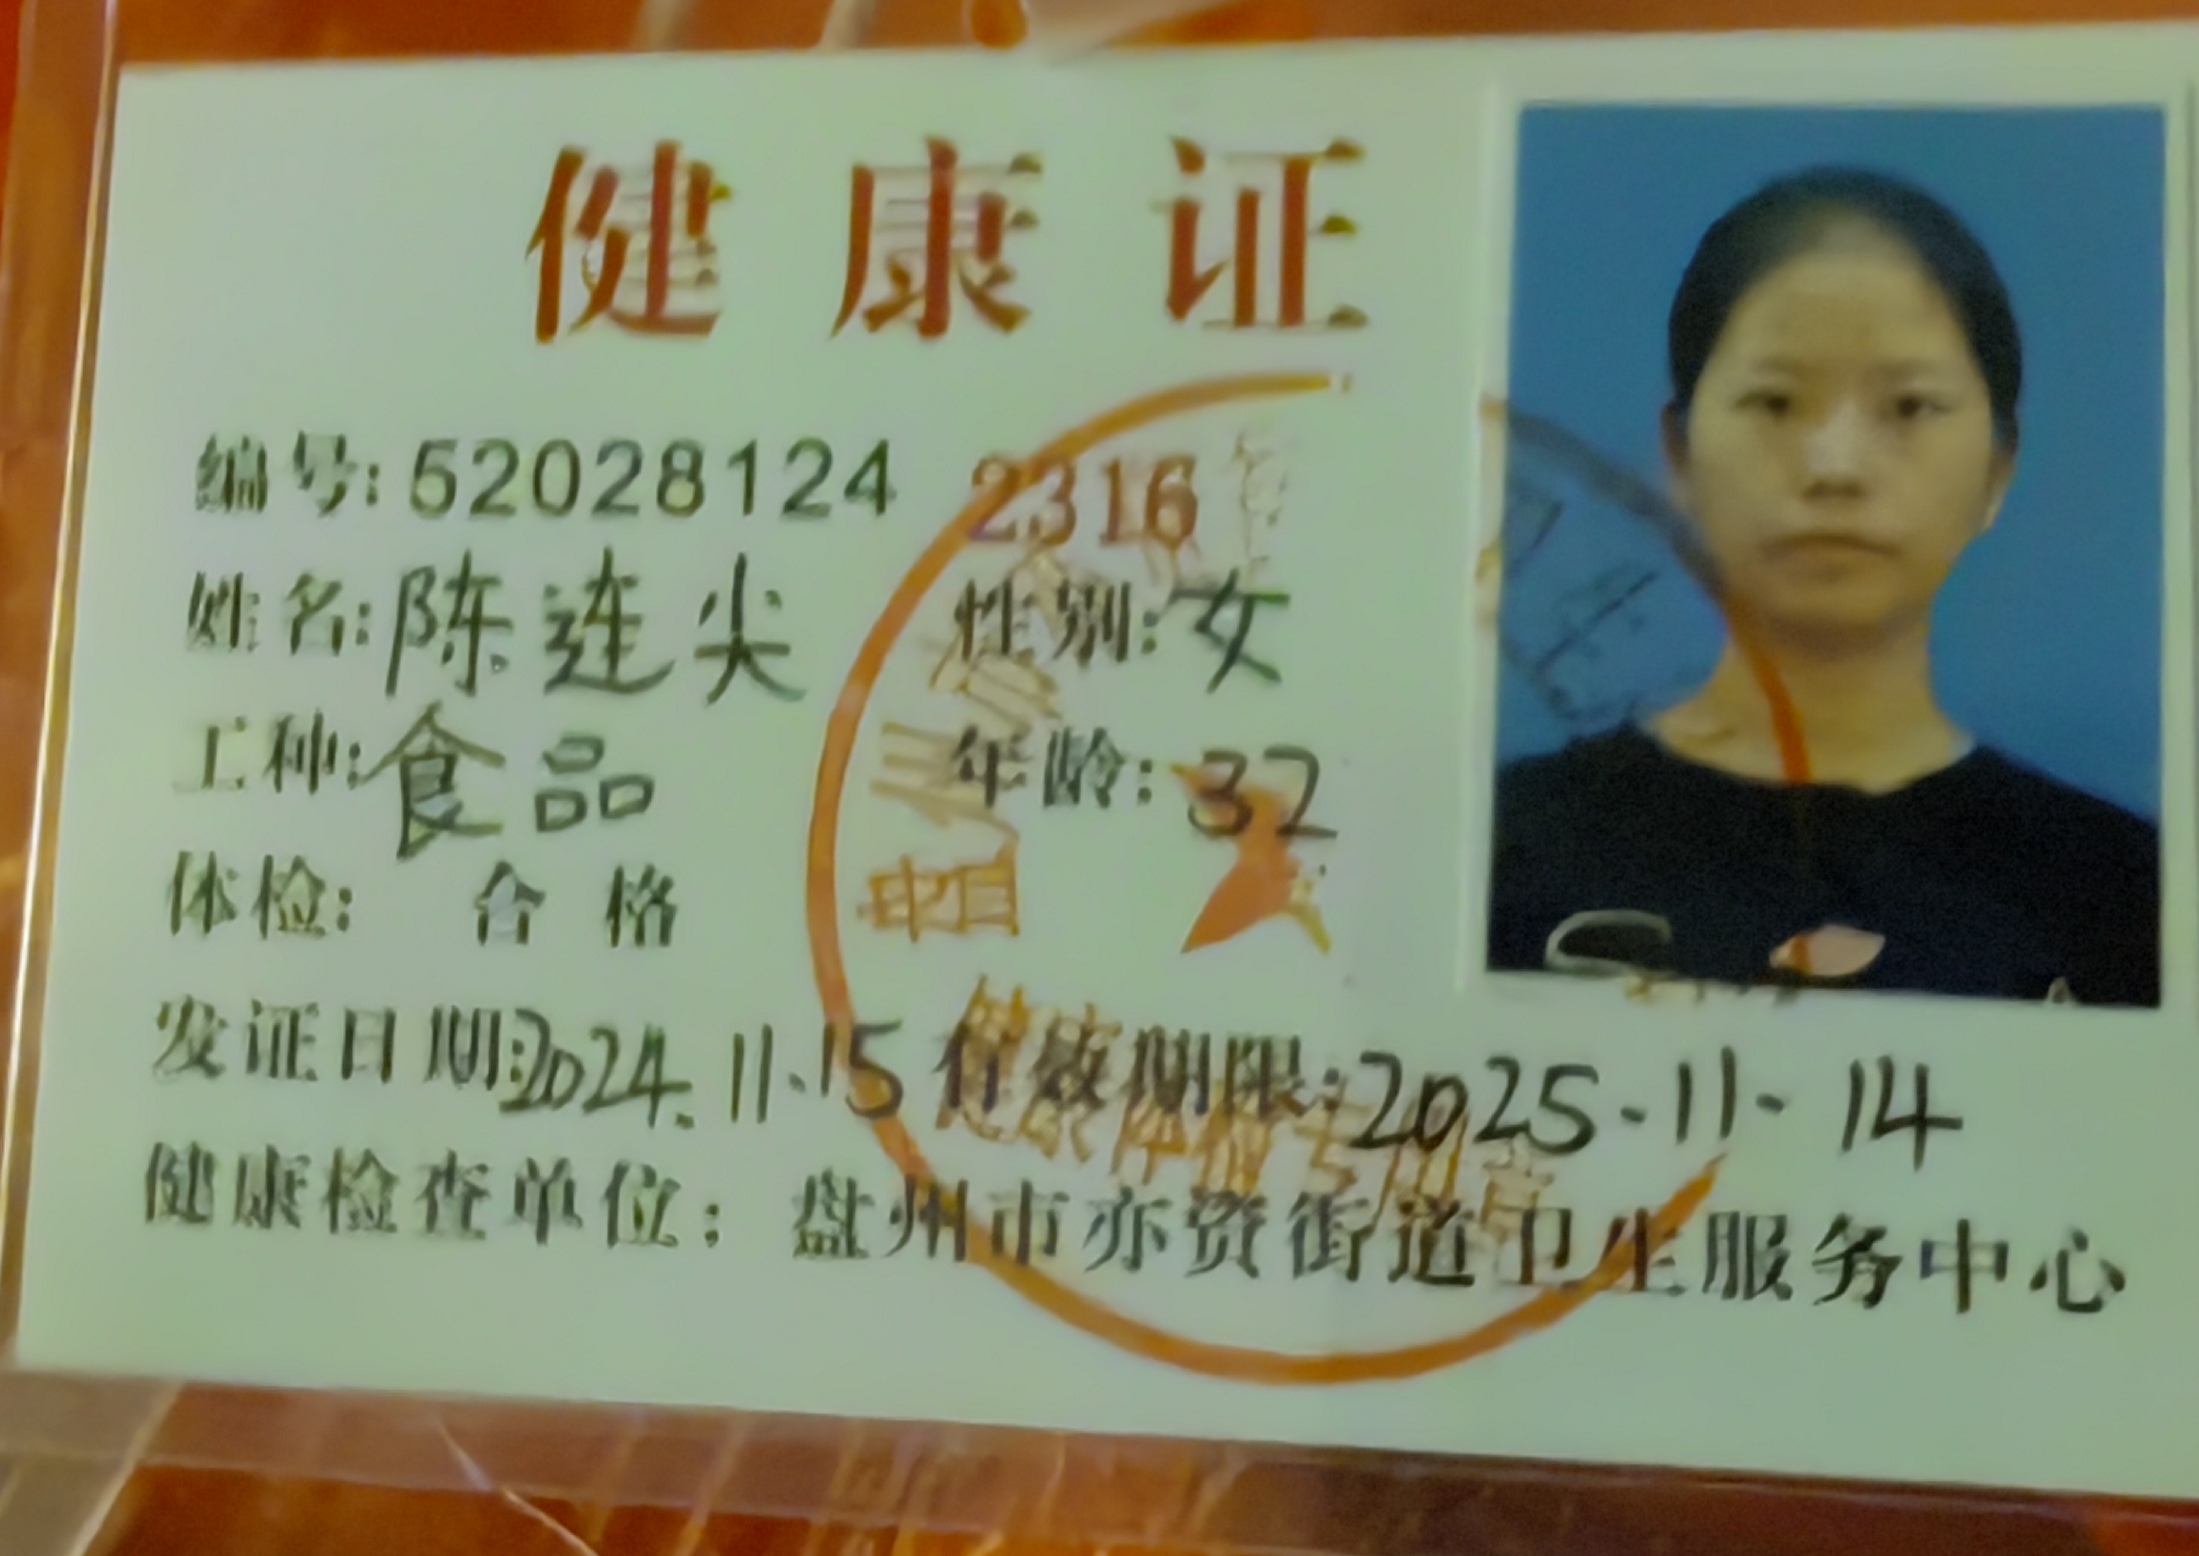 健康证
编号:52028124 2316
姓名:陈连尖 性别:女
工种:食品 年龄:32
体检: 合格
发证日期:2024.11.15 有效期限:2025.11.14
健康检查单位：盘州市亦资街道卫生服务中心